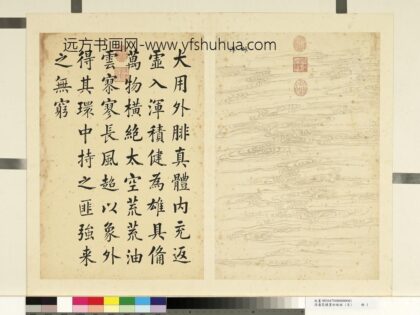 远方书画网-www.yfshuhua.com
大用外腓真體內充返
虛入渾積健為雄具備
萬物橫絕太空荒荒油
雲寥寥長風超以象外
得其環中持之匪強來
之無窮